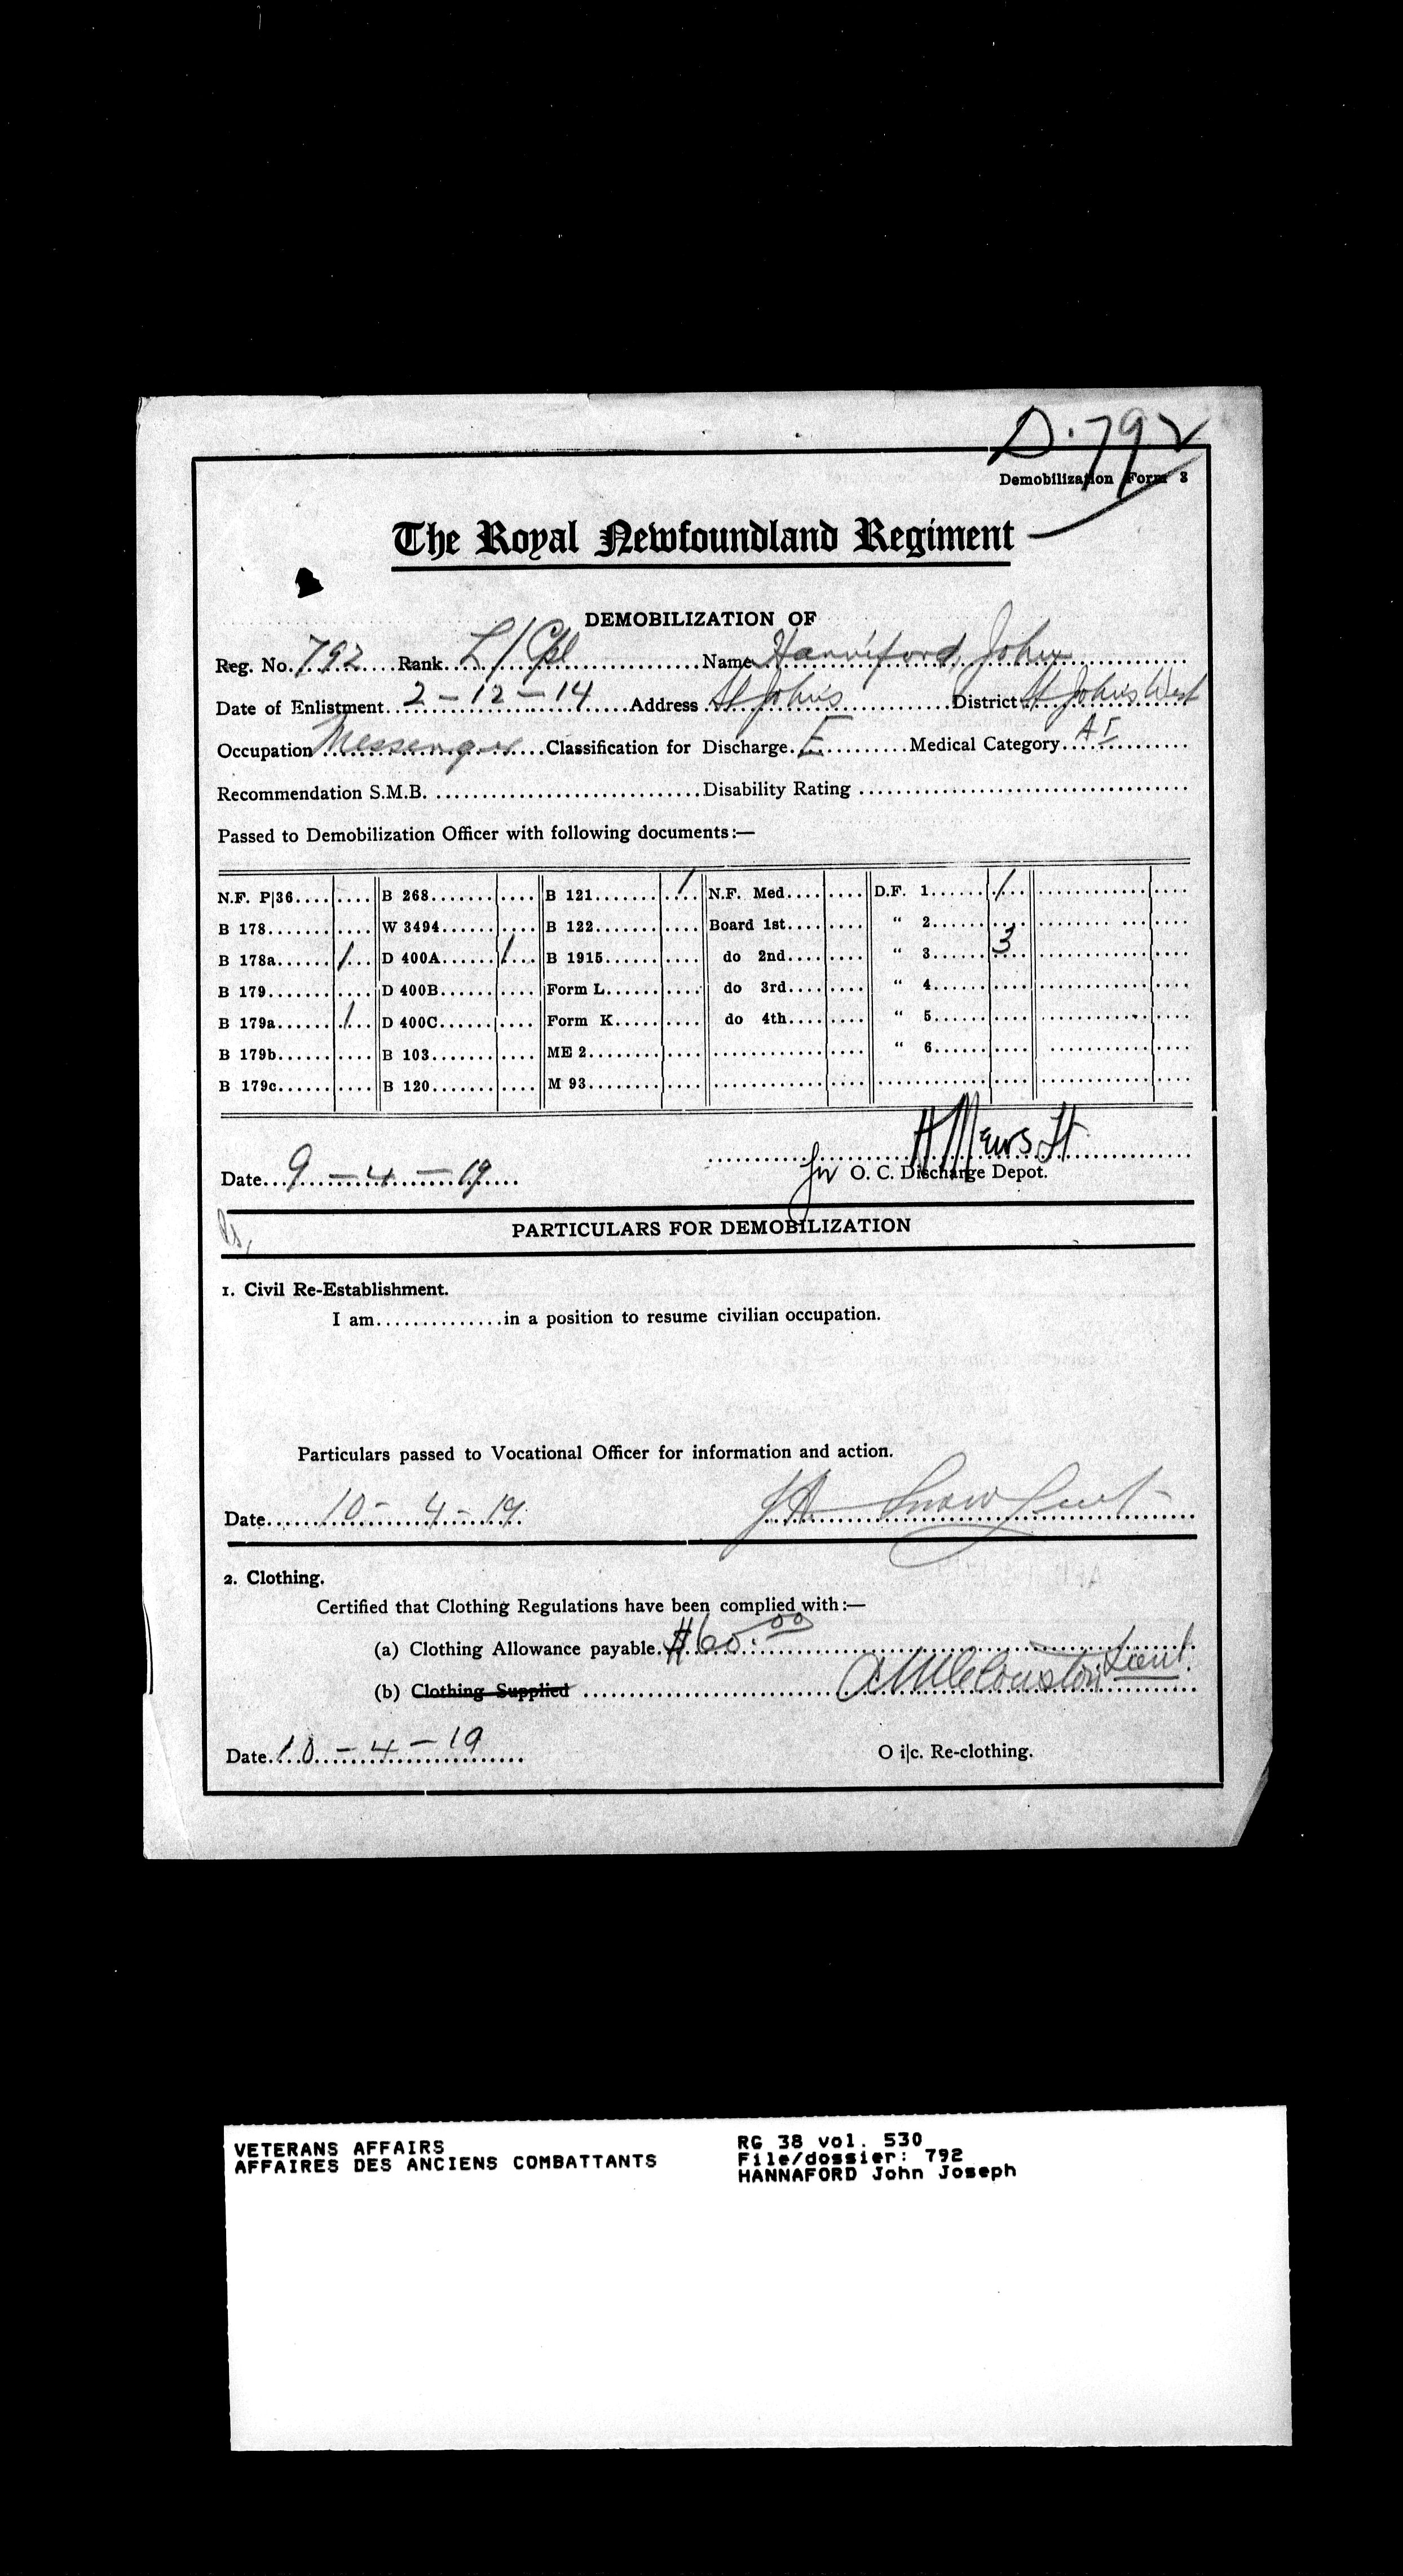 D. 792
Demobilization Form 3
The Royal Newfoundland Regiment
DEMOBILIZATION OF
Reg. No. 792 Rank L/Cpl Name Hanniford, John
Date of Enlistment 2-12-14 Address St John's District St John's West
Occupation Messenger Classification for Discharge. E Medical Category. A I
Recommendation S.M.B. Disability Rating
Passed to Demobilization Officer with following documents:—
N.F. P|36 B 268 B 121 / N.F. Med D.F. 1 /
B 178 W 3494 B 122 Board 1st " 2
B 178a / D 400A / B 1915 do 2nd " 3 3
B 179 D 400B Form L do 3rd " 4
B 179a / D 400C Form K do 4th " 5
B 179b B 103 ME 2 " 6
B 179c B 120 M 93
H Mews Lt
Date 9-4-19 for O. C. Discharge Depot.
PARTICULARS FOR DEMOBILIZATION
1. Civil Re-Establishment.
I am in a position to resume civilian occupation.
Particulars passed to Vocational Officer for information and action.
Date 10-4-19 Snow Lieut
2. Clothing.
Certified that Clothing Regulations have been complied with:—
(a) Clothing Allowance payable. $60.00
(b) Clothing Supplied Lieut.
Date 10-4-19 O i|c. Re-clothing.
VETERANS AFFAIRS RG 38 vol. 530
AFFAIRES DES ANCIENS COMBATTANTS File/dossier: 792
HANNAFORD John Joseph